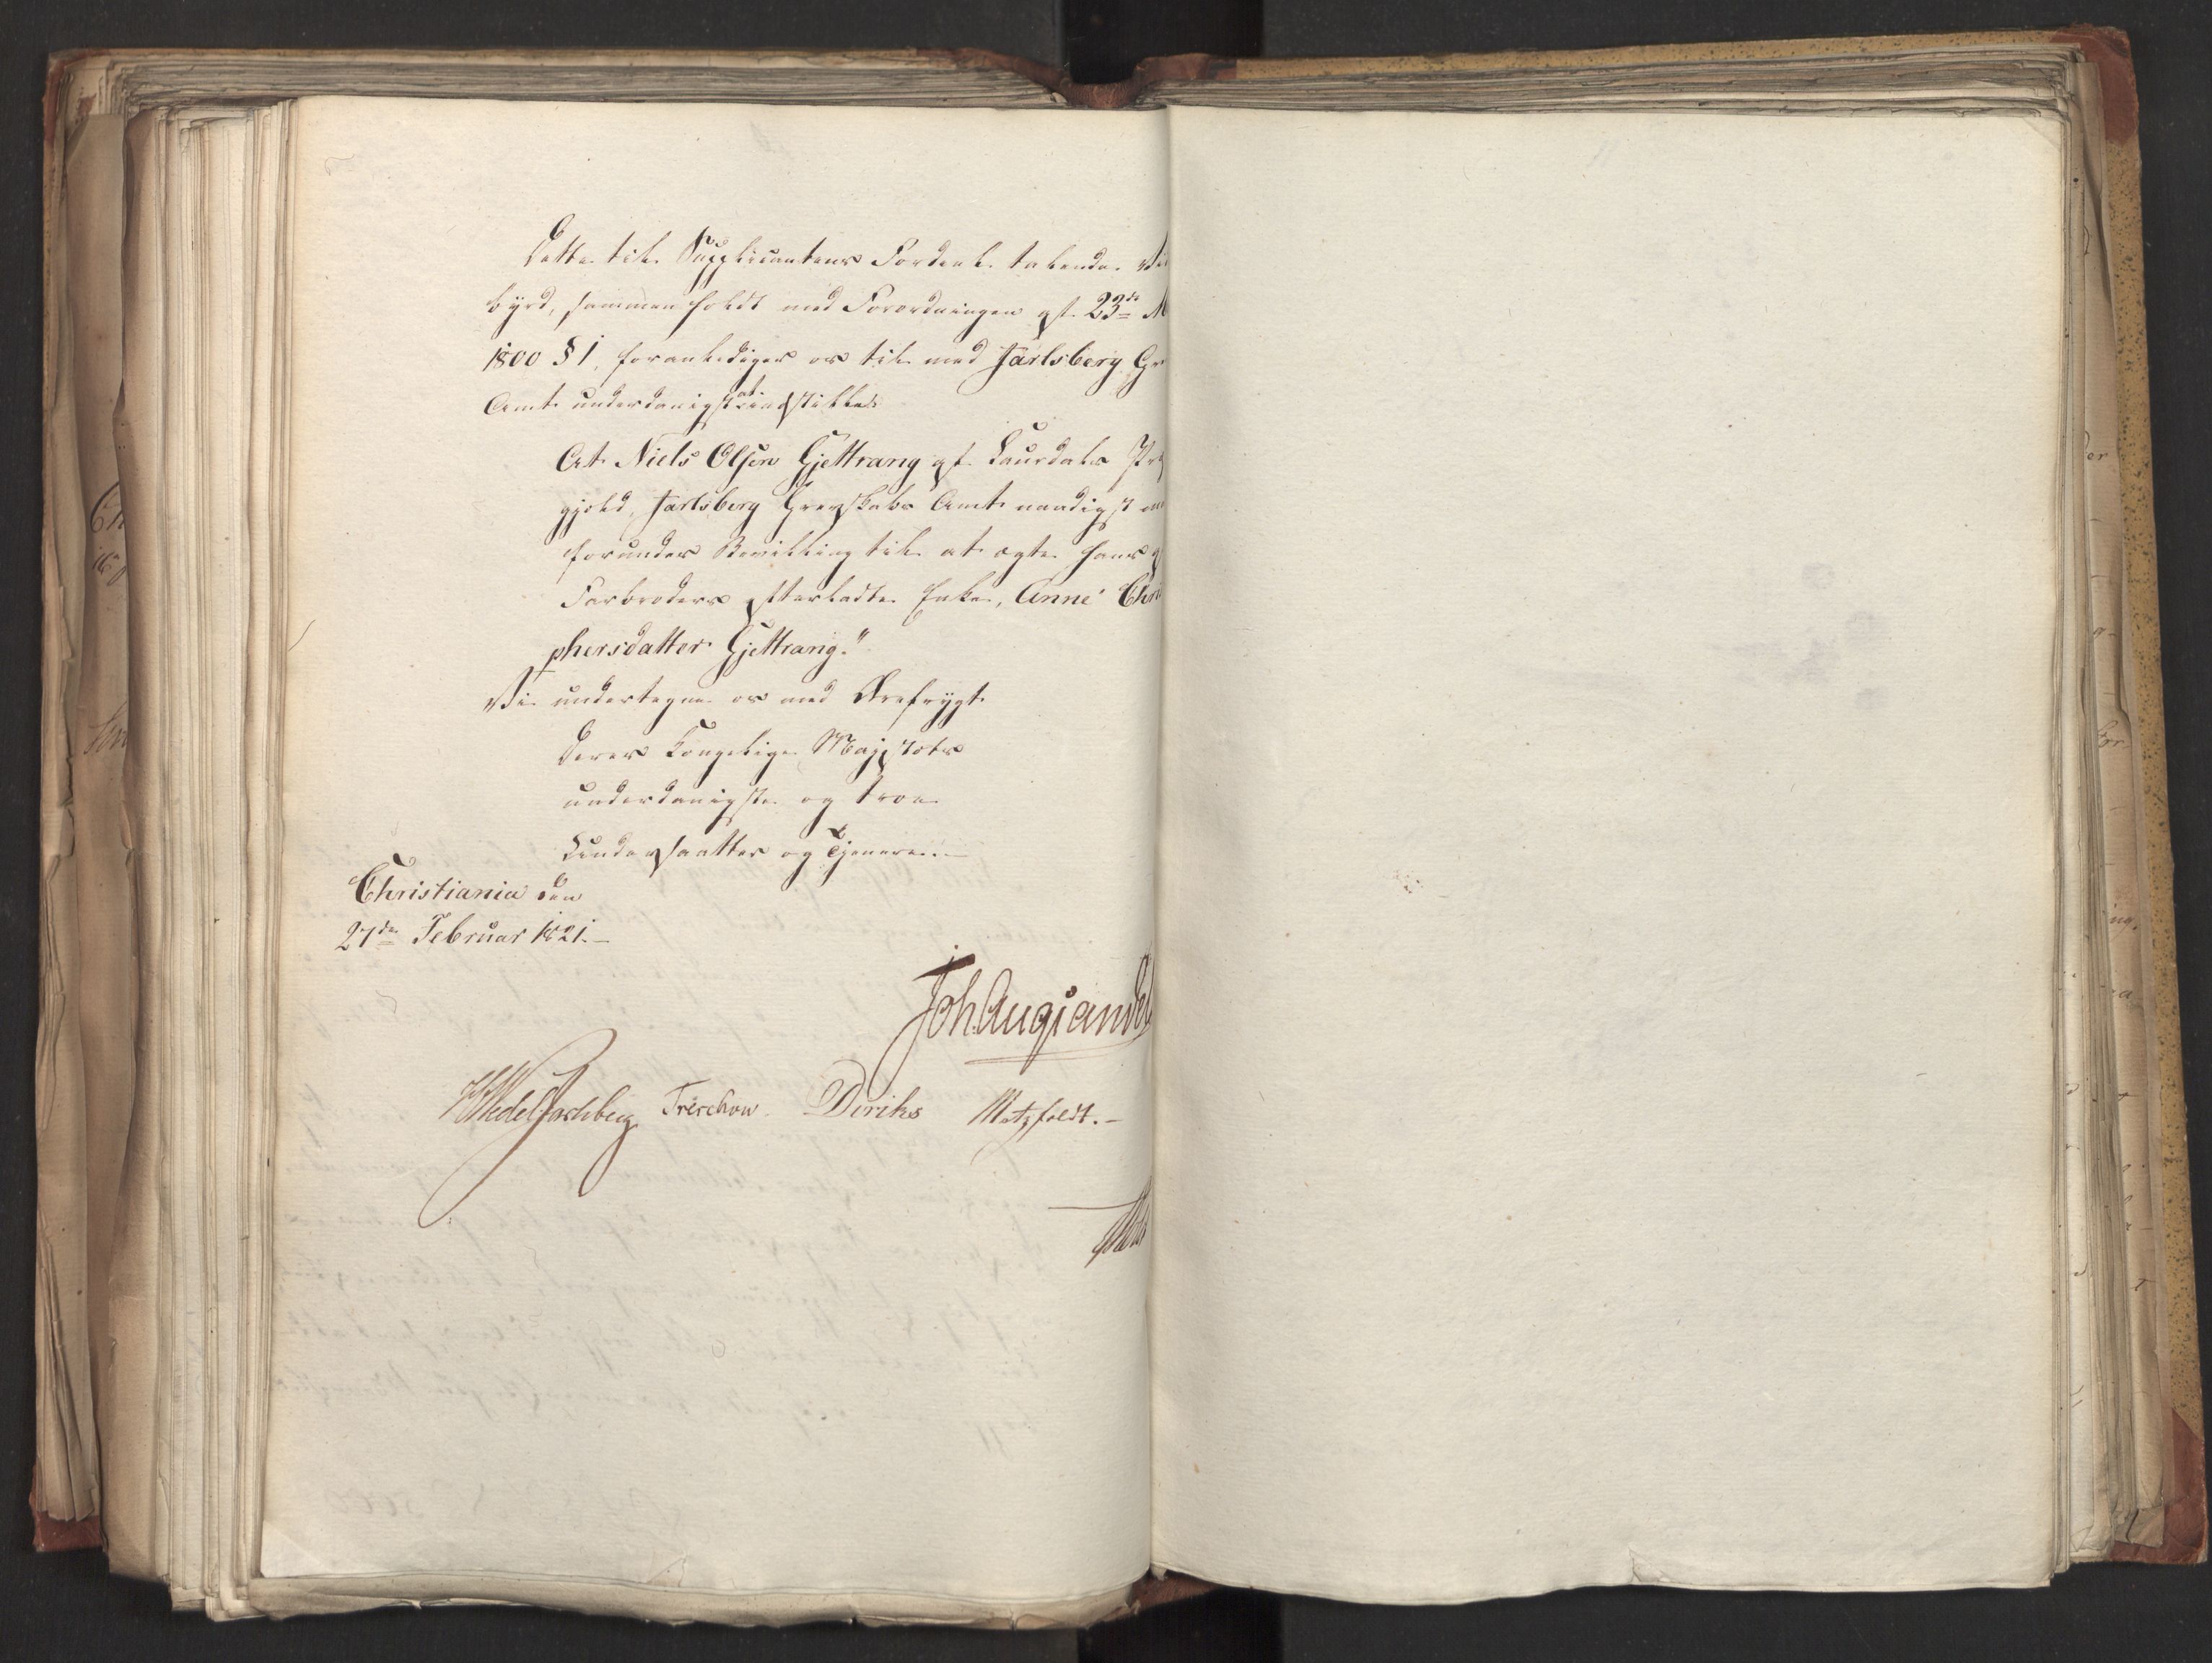 Dette til Supplicantens Fordeel talende Vid
byrd, sammenholdt med Forordningen af 23de M
1800 § 1, foranlediger os til med Jarlsberg Gr
Amt underdanigst at indstille:
At Niels Olsen Gjettrang af Laurdals Præ
gjeld, Jarlsberg Grevskabs Amt naadigst
forundes Bevilling til at ægte hans
Farbroders efterladte Enke, Anne Chri
phersdatter Gjettrang."
Vi undertegne os med Ærefrygt
Deres Kongelige Majestæts
underdanigste og troe
Undersaatter og Tjenere.
Christiania den
27de Februar 1821.
Joh. Aug. Sandel
HWedel Jarlsberg Treschow. Diriks Motzfeldt.